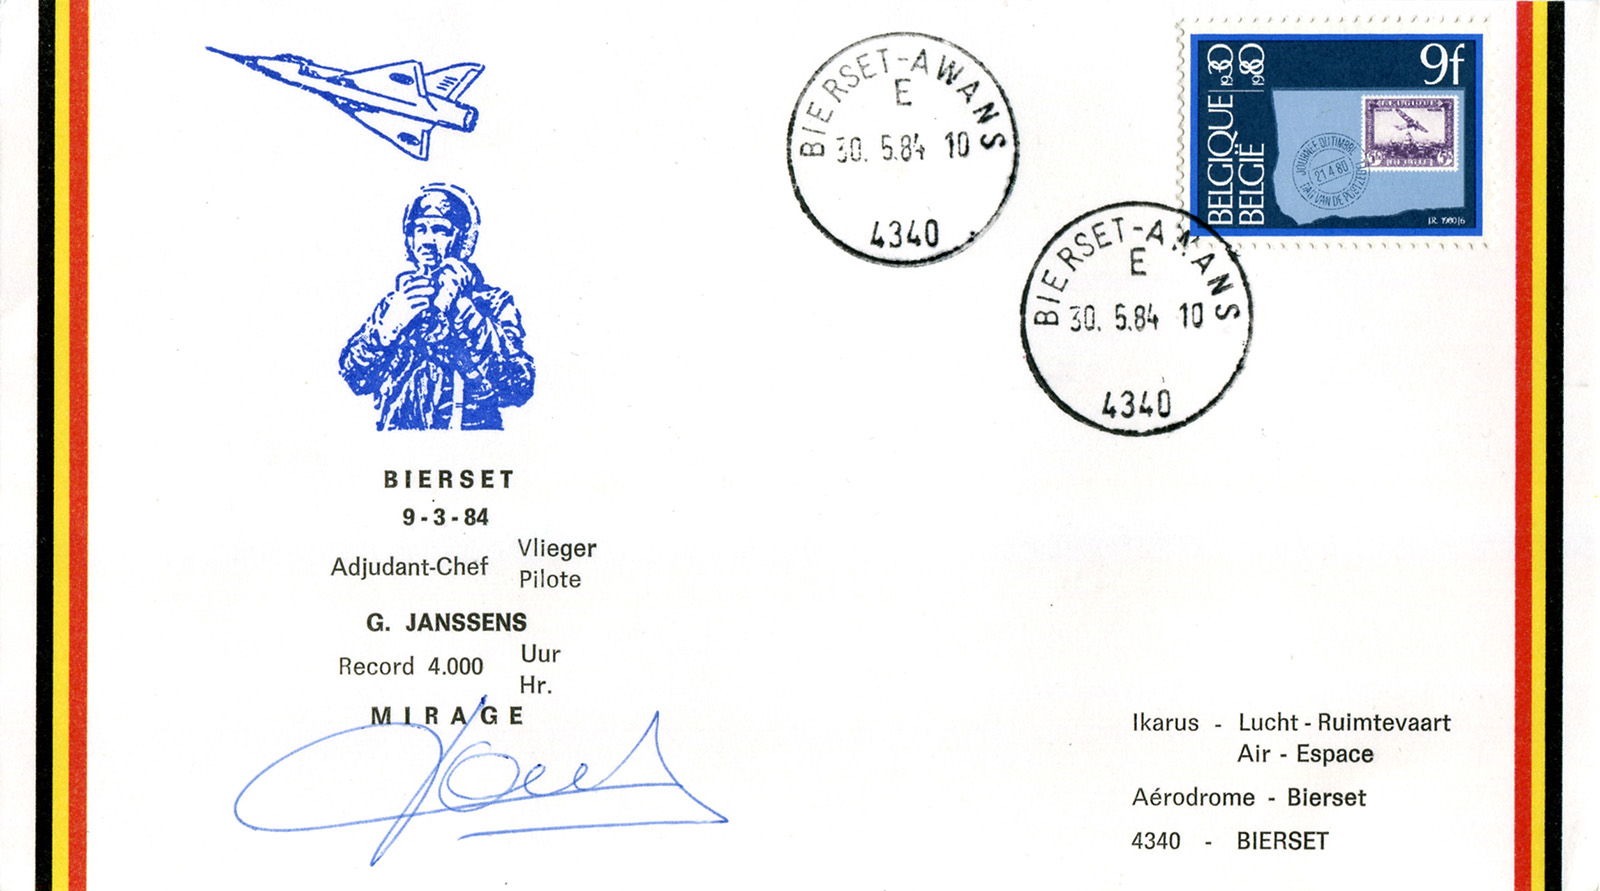 BIERSET-AWANS
E
30. 5.84 10
4340
BIERSET-AWANS
E
30. 5.84 10
4340
BELGIQUE 1930
BELGIË 1980
9f
JOURNÉE DU TIMBRE
21.4.80
DAG VAN DE POSTZEGEL
J.R. 1980|6
BIERSET
9-3-84
Adjudant-Chef Vlieger
Pilote
G. JANSSENS
Record 4.000 Uur
Hr.
MIRAGE
Ikarus - Lucht-Ruimtevaart
Air - Espace
Aérodrome - Bierset
4340 - BIERSET